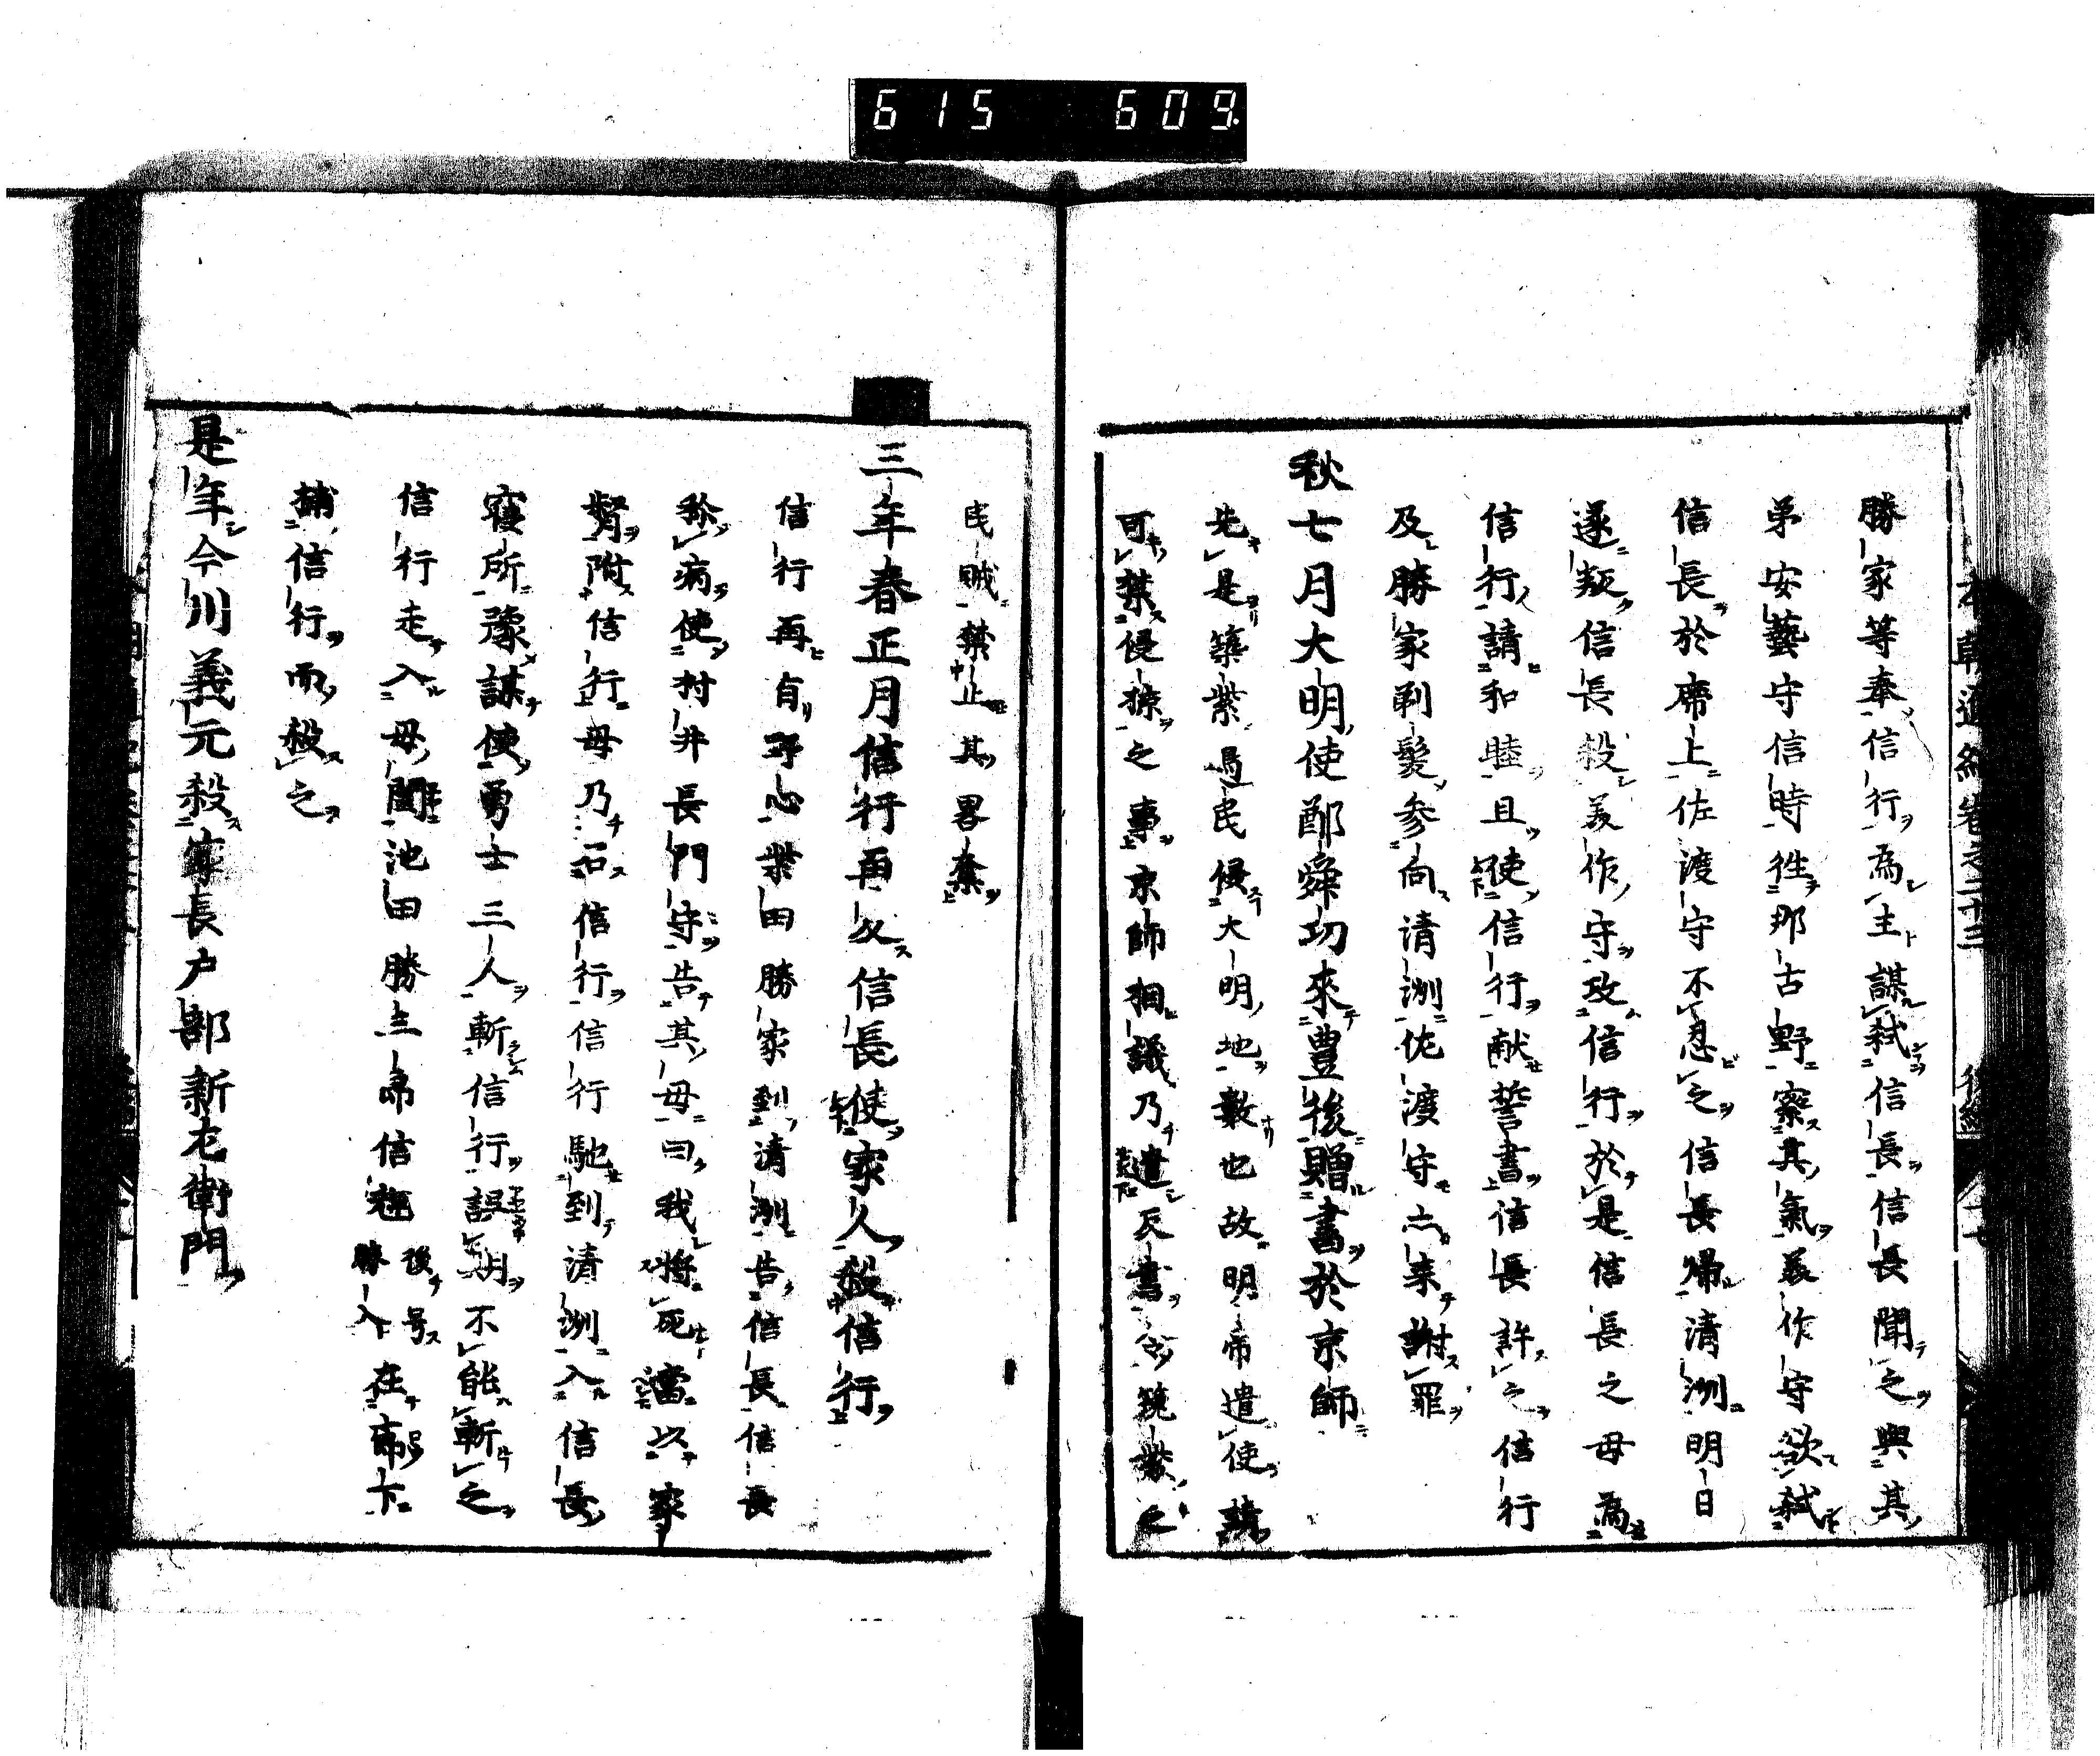 615 609
本朝通紀卷之二十三 後編
勝家等奉信行為主謀弑信長信長聞之與其
弟安藝守信時徃那古野察其氣美作守欲弑
信長於席上佐渡守不忍之信長歸清洲明日
遂叛信長殺美作守攻信行於是信長之母為
信行請和睦且使信行献誓書信長許之信行
及勝家剃髪参向清洲佐渡守亦来謝罪
秋七月大明使鄭舜功來豊後贈書於京師
先是築紫邊民侵大明地數也故明帝遣使請
可禁侵掠之事京師相議乃遣反書令筑紫之
民賊禁止其畧奪
三年春正月信行再久信長使家人殺信行
信行再有野心柴田勝家到清洲告信長信長
称病使村井長門守告其母曰我将死當以家
督附信行母乃召信行信行馳到清洲入信長
寝所豫謀使勇士三人斬信行誤期不能斬之
信行走入母閨池田勝三郎信輝後号勝入在席下
捕信行而殺之
是年今川義元殺家長戸部新左衛門